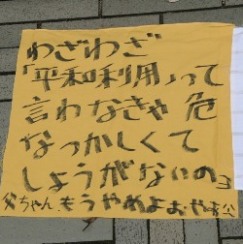 わざわざ
「平和利用」って
言わなきゃ 危
なっかしくて
しょうがないの
父ちゃん もうやめよおや